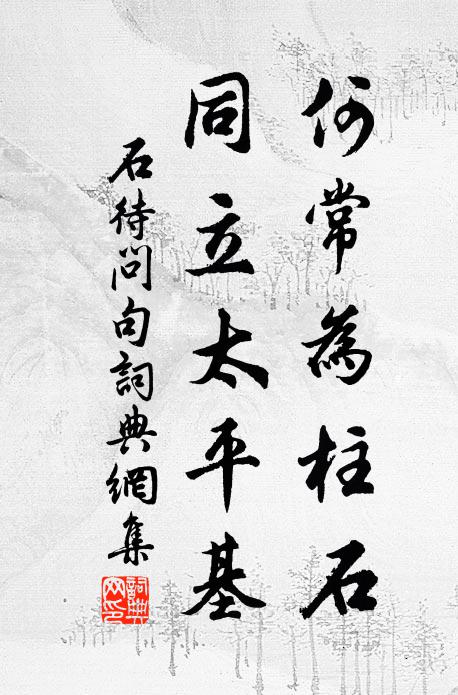 何常為柱石
同立太平基
石待問句詞典網集
詞典網印